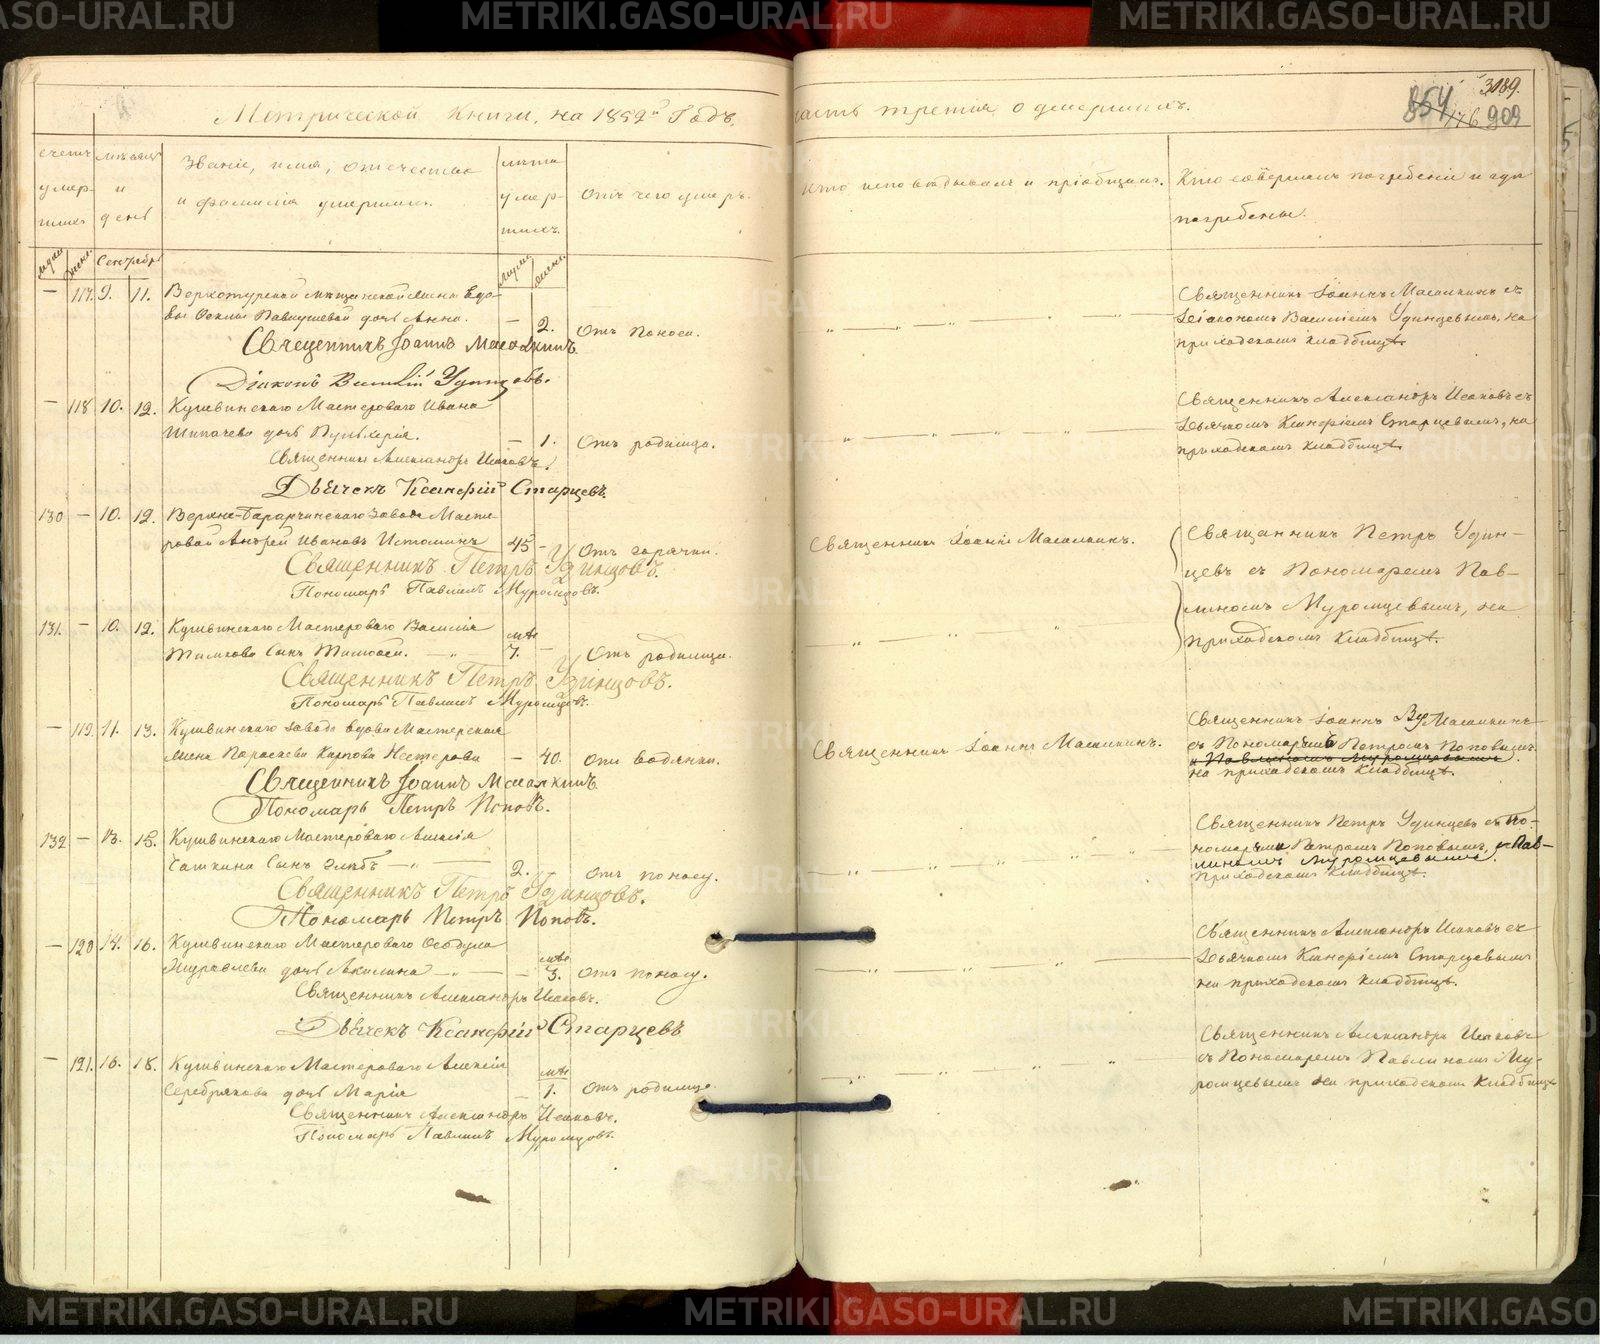 METRIKI.GASO-URAL.RU
3189.
854
176
909
Метрической Книги, на 1852й Годъ,
часть третія о умершихъ.
счетъ умершихъ
мѣсяцъ и день
Званіе, имя, отечество
и фамилія умершихъ.
лѣта умершихъ.
Отъ чего умеръ.
Кто исповѣдывалъ и пріобщалъ.
Кто совершалъ погребеніе и гдѣ
погребены.
Сентябрь
— 117. 9. 11. Верхотурской мѣщанской жены вдо-
вы Ѳеклы дочь Анна. — 2. Отъ поноса.
Священникъ Іоаннъ Масалкинъ.
Діаконъ Василій Удинцовъ.
Священникъ Іоаннъ Масалкинъ съ
Діакономъ Василіемъ Удинцевымъ, на
приходскомъ кладбищѣ.
— 118 10. 12. Кушвинскаго Мастероваго Ивана
Шипачева дочь Пульхерія. — 1. Отъ родимца.
Священникъ Александръ Исаковъ.
Дьячекъ Ксанфій Старцевъ.
Священникъ Александръ Исаковъ съ
Дьячкомъ Ксанфіемъ Старцевымъ, на
приходскомъ кладбищѣ.
130 — 10. 12. Верхне-Баранчинскаго завода Масте-
ровой Андрей Ивановъ Истоминъ 45 — Отъ горячки.
Священникъ Петръ Удинцовъ.
Пономарь Павлинъ Муромцовъ.
Священникъ Іоаннъ Масалкинъ.
Священникъ Петръ Удин-
цевъ съ Пономаремъ Пав-
линомъ Муромцевымъ, на
приходскомъ кладбищѣ.
131. — 10. 12. Кушвинскаго Мастероваго Василія
сынъ мѣс 7. — Отъ родимца.
Священникъ Петръ Удинцовъ.
Пономарь Павлинъ Муромцовъ.
— 119. 11. 13. Кушвинскаго завода вдова Мастерская
жена Параскева Карпова Нестерова — 40. Отъ водянки.
Священникъ Іоаннъ Масалкинъ.
Пономарь Петръ Поповъ.
Священникъ Іоаннъ Масалкинъ.
Священникъ Іоаннъ Масалкинъ
съ Пономаремъ Петромъ Поповымъ
и Павлиномъ Муромцевымъ.
на приходскомъ кладбищѣ.
132 — 13. 15. Кушвинскаго Мастероваго Алексія
сынъ Глѣбъ — 2. Отъ поносу.
Священникъ Петръ Удинцовъ.
Пономарь Петръ Поповъ.
Священникъ Петръ Удинцевъ съ По-
номарями Петромъ Поповымъ, и Пав-
линомъ Муромцевымъ.
приходскомъ кладбищѣ.
— 120 14. 16. Кушвинскаго Мастероваго Ѳеодула
Журавлева дочь Акилина — мѣс 3. Отъ поносу.
Священникъ Александръ Исаковъ.
Дьячекъ Ксанфій Старцевъ
Священникъ Александръ Исаковъ съ
Дьячкомъ Ксанфіемъ Старцевымъ
на приходскомъ кладбищѣ.
— 121. 16. 18. Кушвинскаго Мастероваго Алексія
Серебрякова дочь Марія — мѣс 1. Отъ родимца.
Священникъ Александръ Исаковъ.
Пономарь Павлинъ Муромцовъ.
Священникъ Александръ Исаковъ
съ Пономаремъ Павлиномъ Му-
ромцевымъ на приходскомъ кладбищѣ
METRIKI.GASO-URAL.RU